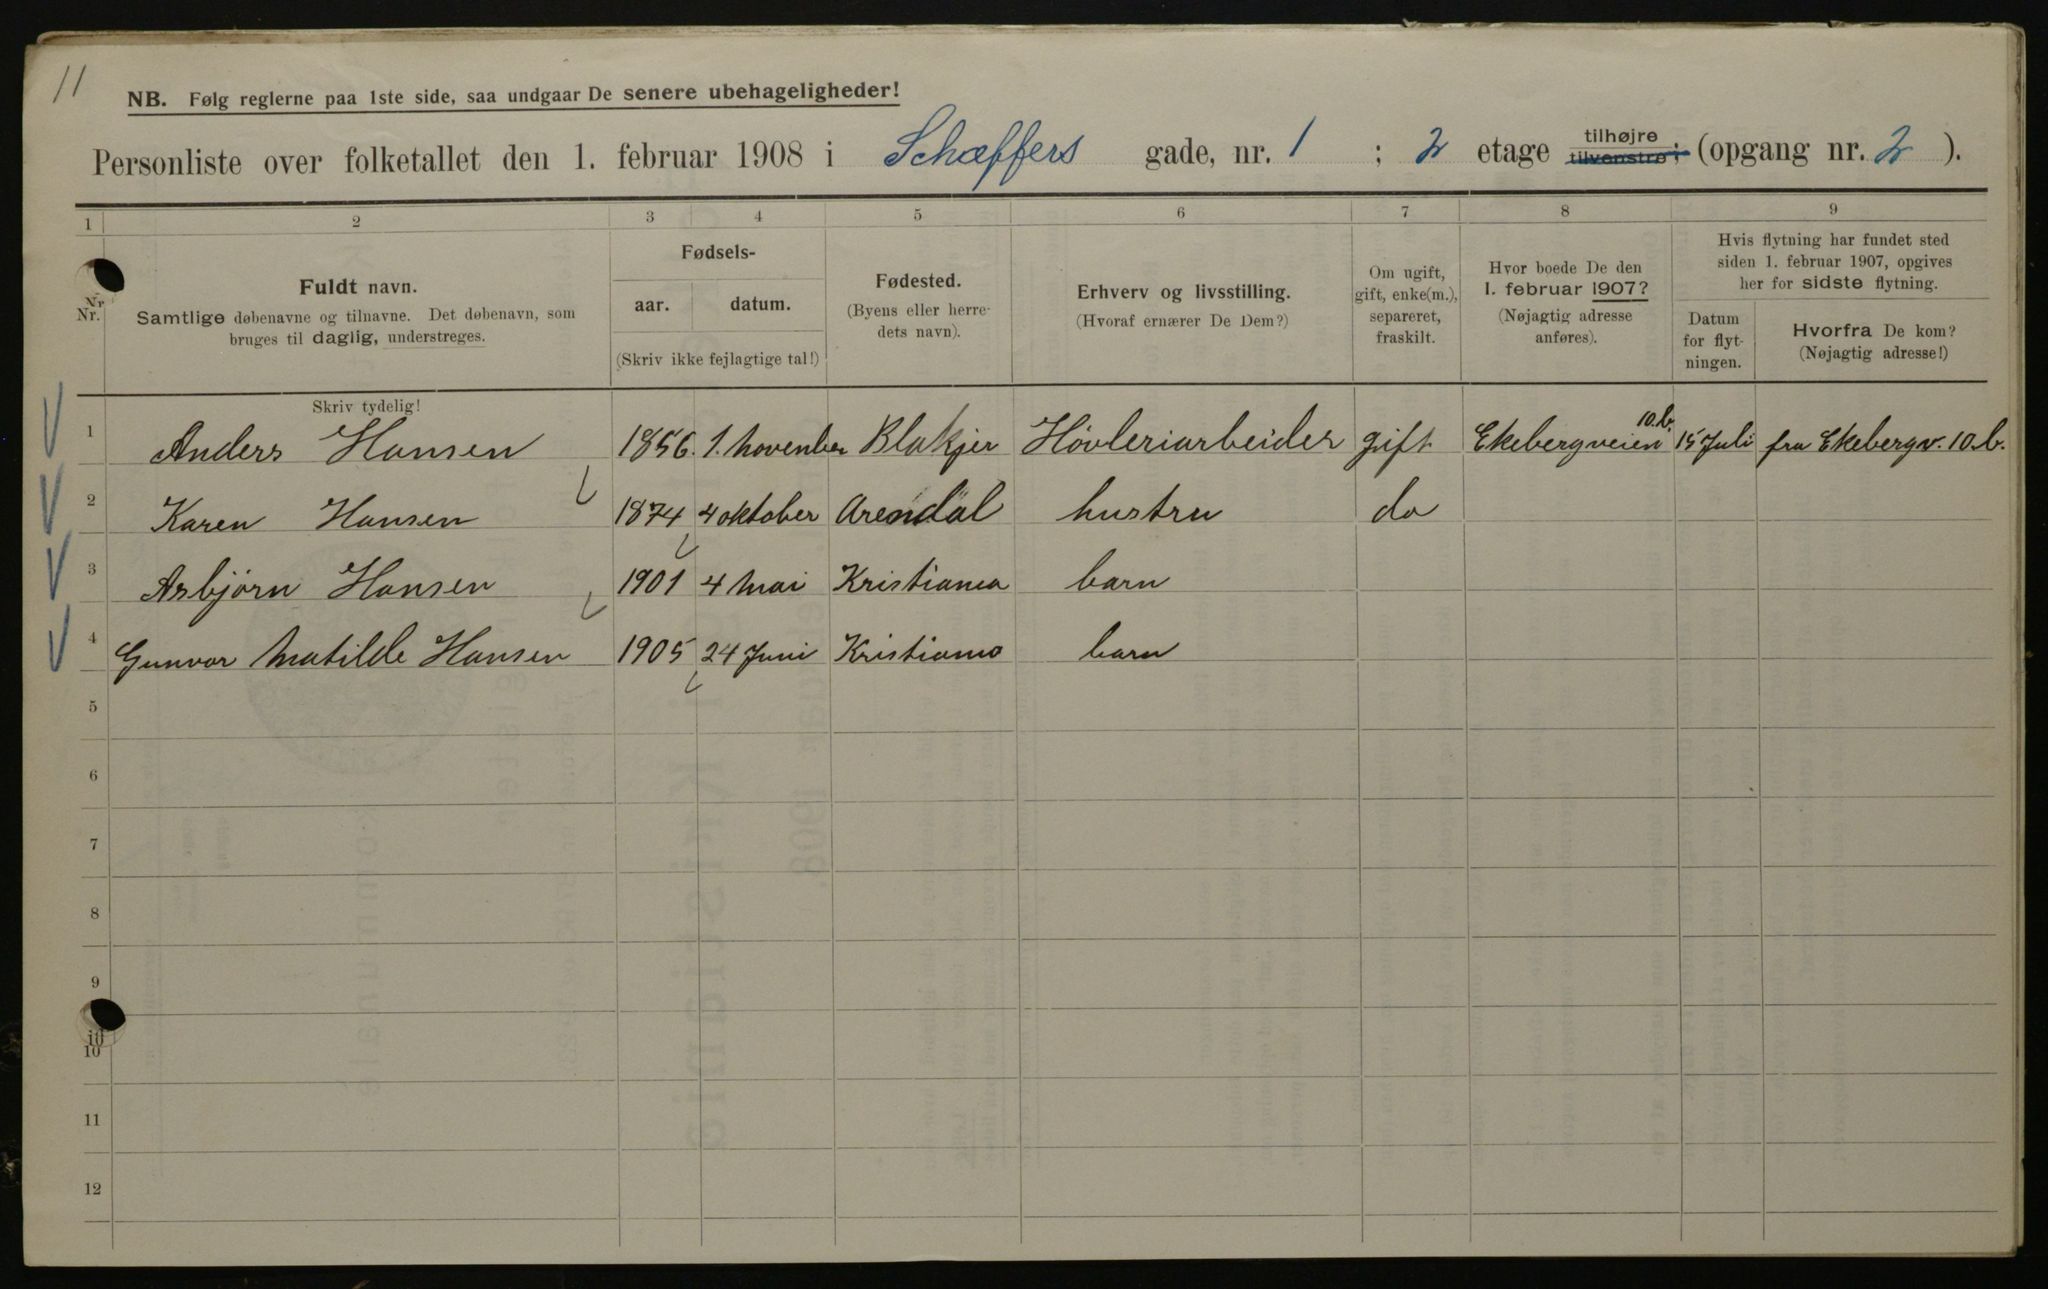 11
NB. Følg reglerne paa 1ste side, saa undgaar De senere ubehageligheder!
Personliste over folketallet den 1. februar 1908 i Schæffers gade, nr. 1 ; 2 etage tilhøjre tilvenstre; (opgang nr. 2 ).
1 2 3 4 5 6 7 8 9
Nr.
Nr.
Fuldt navn.
Samtlige døbenavne og tilnavne. Det døbenavn, som
bruges til daglig, understreges.
Skriv tydelig!
Fødsels-
aar. datum.
(Skriv ikke fejlagtige tal!)
Fødested.
(Byens eller herre-
dets navn).
Erhverv og livsstilling.
(Hvoraf ernærer De Dem?)
Om ugift,
gift, enke(m.),
separeret,
fraskilt.
Hvor boede De den
1. februar 1907?
(Nøjagtig adresse
anføres).
Hvis flytning har fundet sted
siden 1. februar 1907, opgives
her for sidste flytning.
Datum
for flyt-
ningen.
Hvorfra De kom?
(Nøjagtig adresse!)
1 Anders Hansen 1856. 1. november Blakjer Høvleriarbeider gift Ekebergveien 10.b. 15 Juli fra Ekebergv. 10.b.
2 Karen Hansen 1874 4 oktober Arendal hustru do
3 Asbjørn Hansen 1901 4 Mai Kristiania barn
4 Gunvor Matilde Hansen 1905 24 Juni Kristiania barn
5
6
7
8
9
10
10
11
12